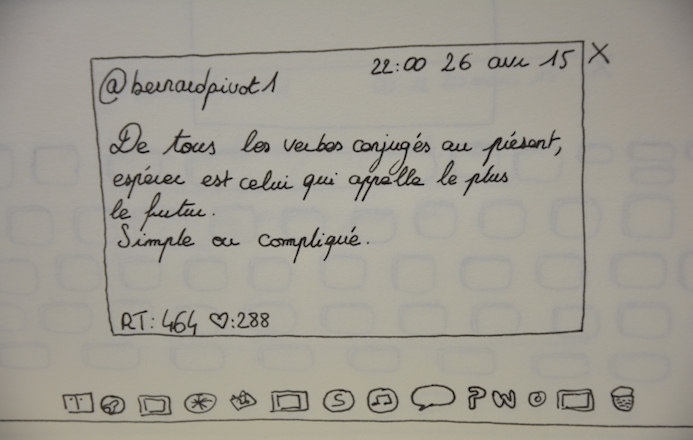 @bernardpivot1
22:00 26 avr 15 X
De tous les verbes conjugés au présent,
espérer est celui qui appelle le plus
le futur.
Simple ou compliqué.
RT: 464 ♡:288
S
P W